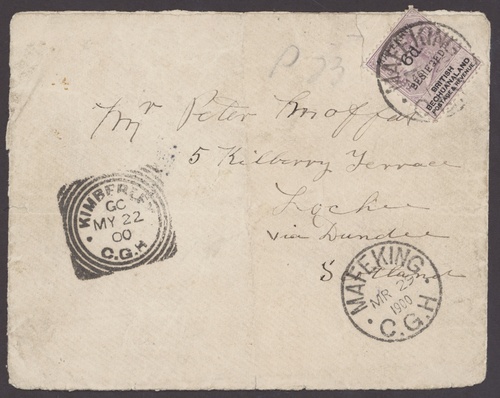 P 73
MAFEKING
6d.
BESIEGED.
BRITISH
BECHUANALAND
POSTAGE & REVENUE
Mr Peter Moffat
5 Kilberry Terrace
Lochee
via Dundee
Scotland
KIMBERLEY
GC
MY 22
00
C.G.H
MAFEKING
MR 23
1900
C.G.H.